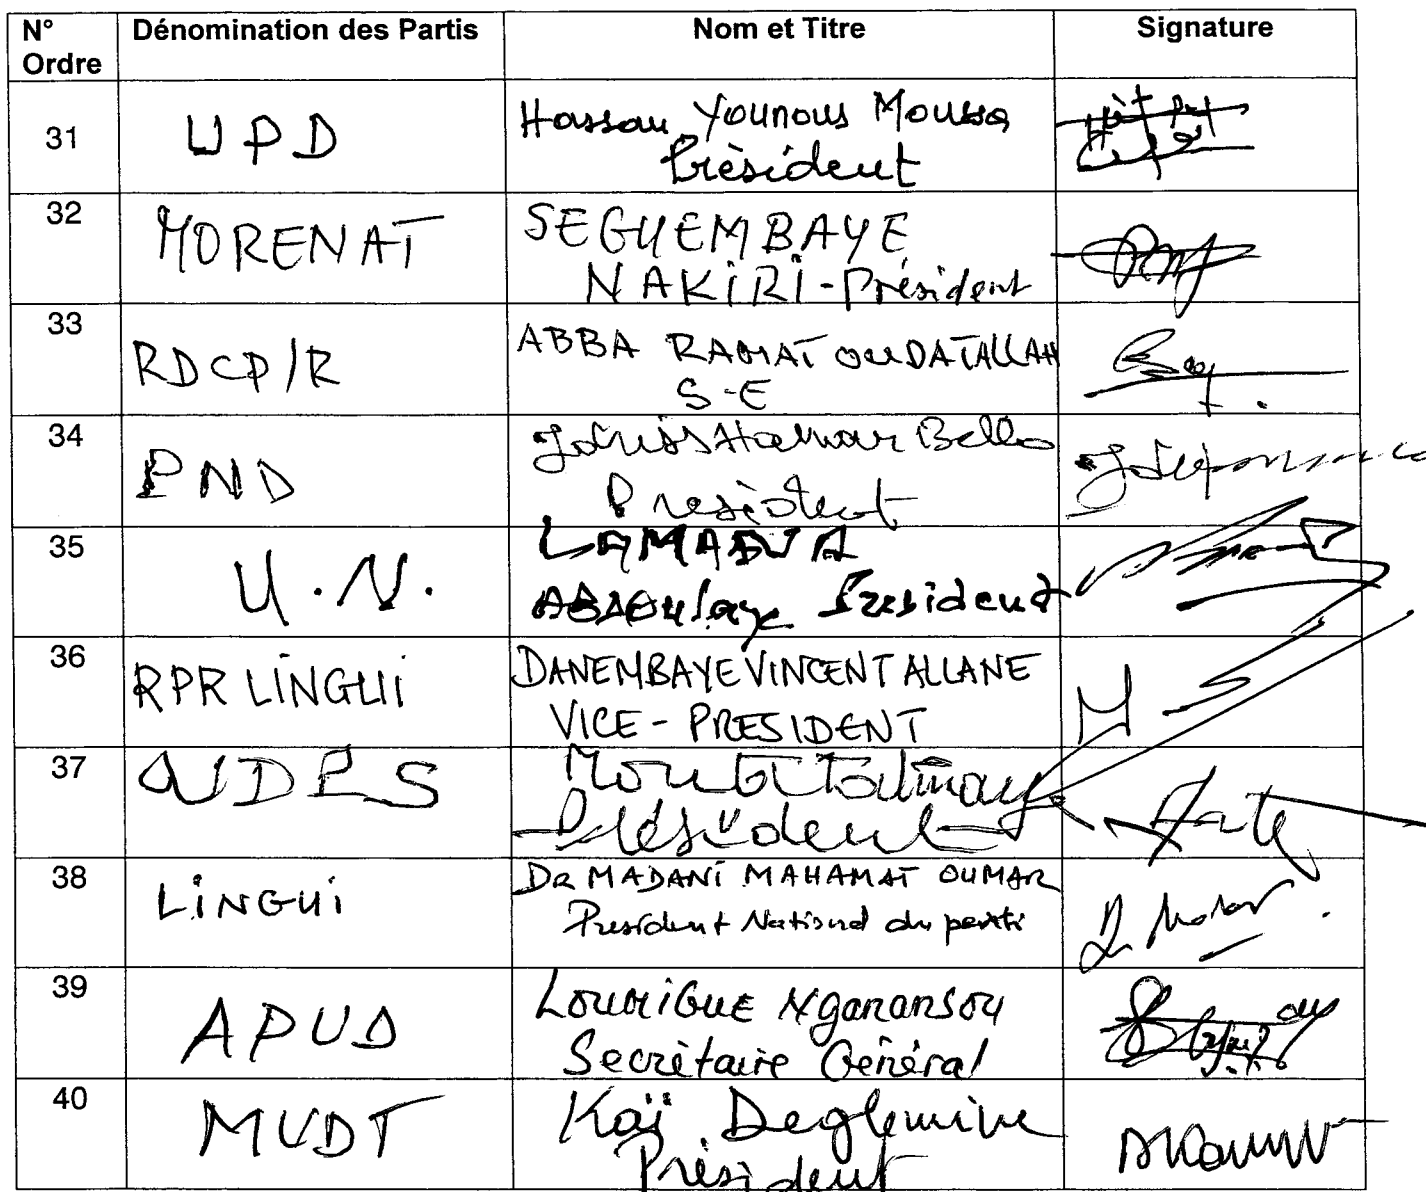 N° Ordre Dénomination des Partis Nom et Titre Signature
31 UPD Hassan Younous Moussa
Président
32 MORENAT SEGUEMBAYE
NAKIRI - Président
33 RDCP/R ABBA RAMAT OUDATALLAH
S-E
34 PND Bello
President
35 U.N. LAMADNA
ABDOulaye President
36 RPR LINGUI DANEMBAYE VINCENT ALLANE
VICE - PRESIDENT
37 UDPS
Président
38 LINGUI DR MADANI MAHAMAT OUMAR
President National du parti
39 APUD Nganansou
Secrétaire Général
40 MUDT Kaï
Président